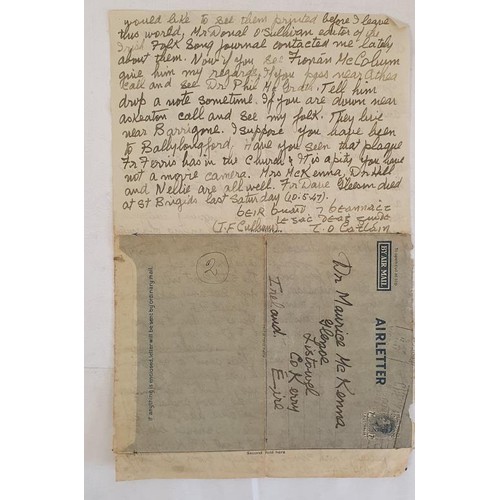 would like to see them printed before I leave
this world, Mr Donal O'Sullivan editor of the
Irish Folk Song Journal contacted me lately
about them. Now if you see Fionán McColuim
give him my regards, If you pass near Athea
call and see Dr Phil McGrath. Tell him
drop a note sometime. If you are down near
Askeaton call and see my folk. They live
near Barrigone. I suppose you have been
to Ballylongford. Have you seen that plaque
Fr Ferris has in the Church? It is a pity you have
not a movie camera. Mrs McKenna, Dr Bill
and Nellie are all well. Fr Dave Gleeson died
at St Brigids last Saturday (10.5.47).
beir buaid 7 beannact
(T.F Culhane)
2
BY AIR MAIL
AIRLETTER
Dr Maurice McKenna
Listowel
Co Kerry
Eire
Ireland.
Second fold here